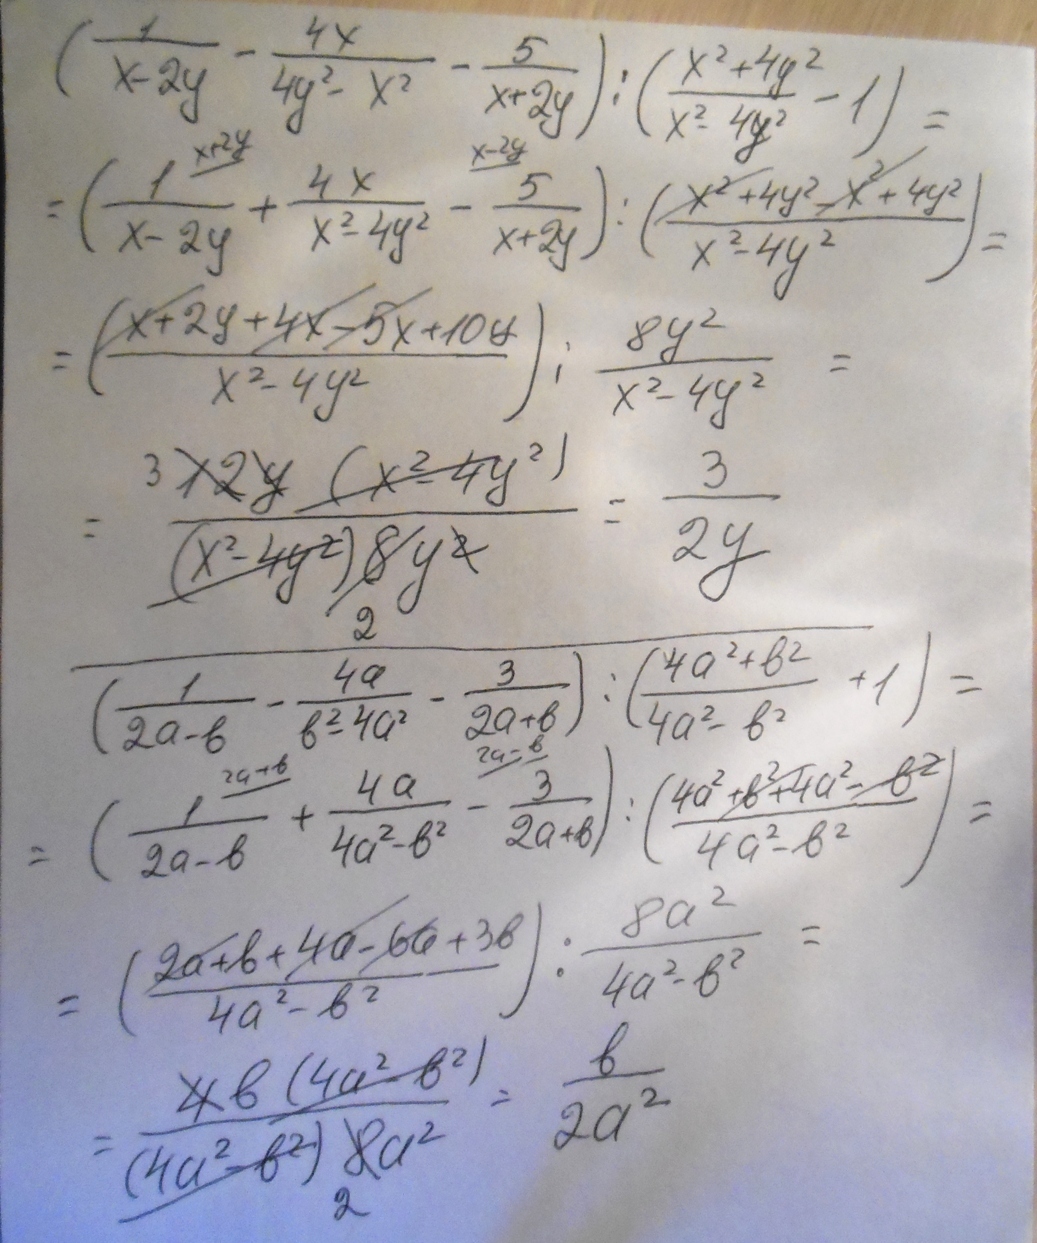 (1/(x-2y) - 4x/(4y²-x²) - 5/(x+2y)) : ((x²+4y²)/(x²-4y²) - 1) =
x+2y x-2y
= (1/(x-2y) + 4x/(x²-4y²) - 5/(x+2y)) : ((x²+4y²-x²+4y²)/(x²-4y²)) =
= ((x+2y+4x-5x+10y)/(x²-4y²)) : 8y²/(x²-4y²) =
3
= 12y (x²-4y²)/((x²-4y²) 8y²) = 3/2y
2
(1/(2a-b) - 4a/(b²-4a²) - 3/(2a+b)) : ((4a²+b²)/(4a²-b²) + 1) =
2a+b 2a-b
= (1/(2a-b) + 4a/(4a²-b²) - 3/(2a+b)) : ((4a²+b²+4a²-b²)/(4a²-b²)) =
= ((2a+b+4a-6a+3b)/(4a²-b²)) : 8a²/(4a²-b²) =
= 4b (4a²-b²)/((4a²-b²) 8a²) = b/2a²
2